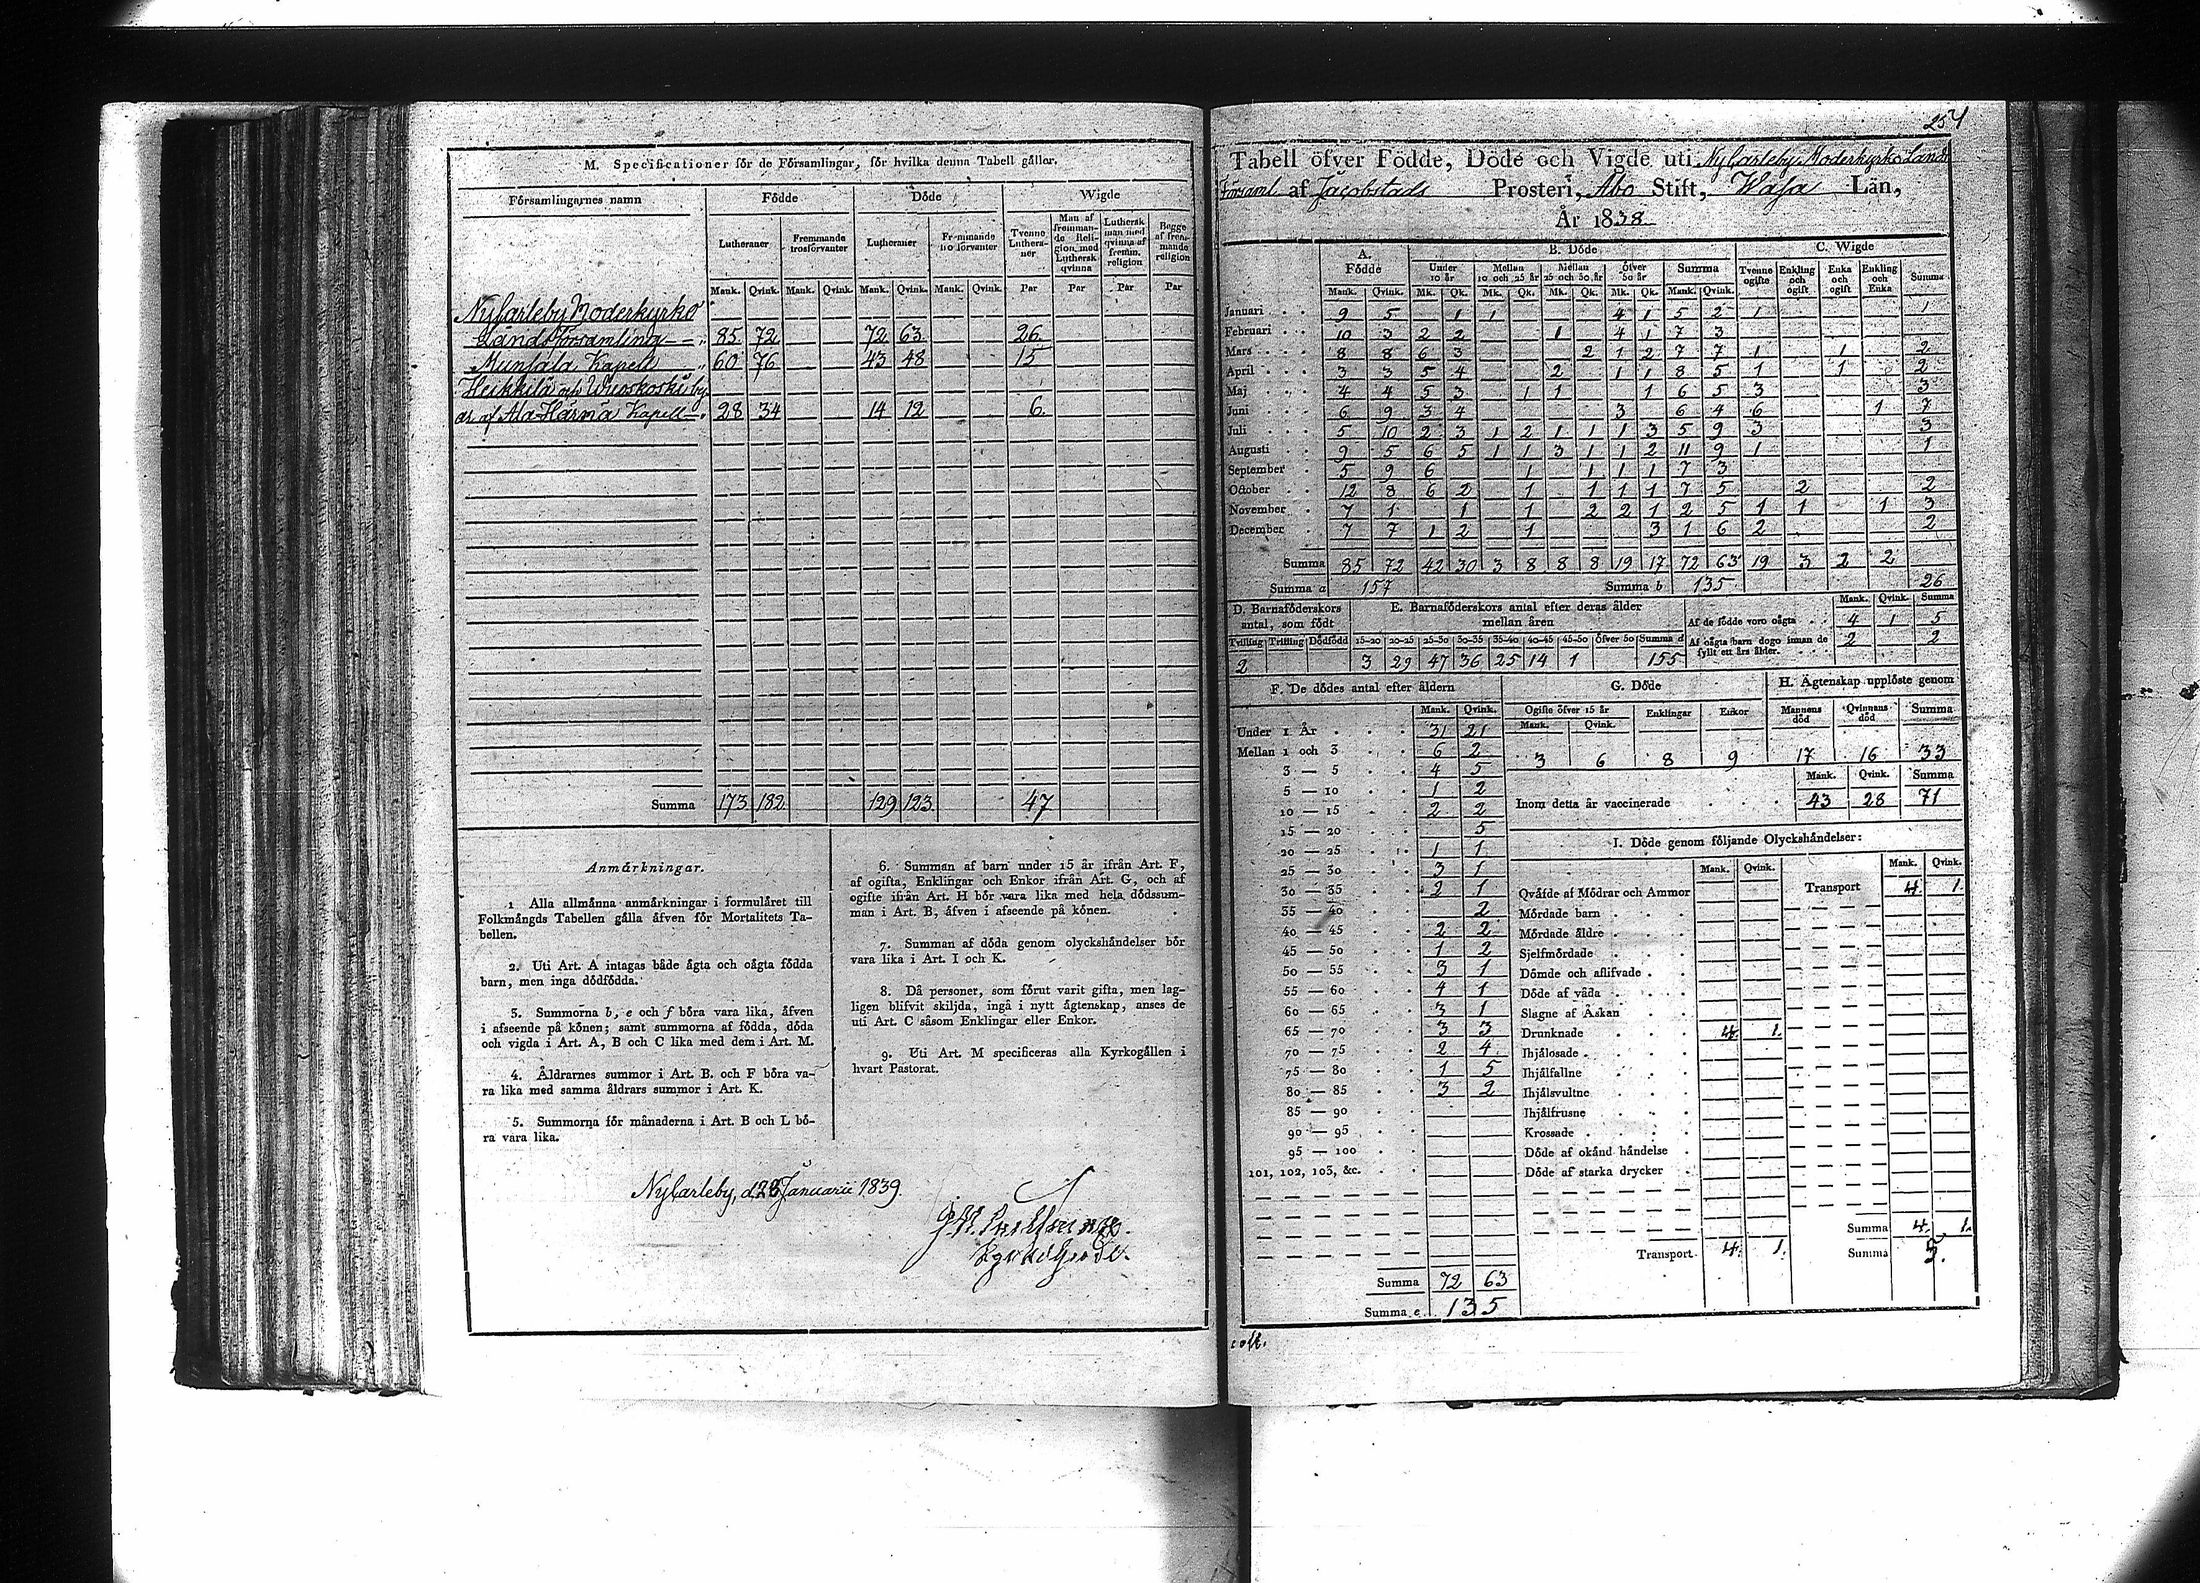 M. Specificationer för de Församlingar, för hvilka denna Tabell gäller.
Församlingarnes namn Födde Döde Wigde
Lutheraner Fremmande trosförvanter Lutheraner Fremmande trosförvanter Tvenne Lutheraner Man af fremmande Religion med Luthersk qvinna Luthersk man med qvinna af fremm. religion Begge af fremmande religion
Mank. Qvink. Mank. Qvink. Mank. Qvink. Mank. Qvink. Par Par Par Par
NyCarleby Moderkyrko
Lands Församling 85 72 72 63 26.
Munsala Kapell 60 76 43 48 15
Heikkilä och Wuoskoski by-
ar af Ala-Härmä Kapell 28 34 14 12 6.
Summa 173 182 129 123 47
Anmärkningar.
1 Alla allmänna anmärkningar i formuläret till
Folkmängds Tabellen gälla äfven för Mortalitets Ta-
bellen.
2. Uti Art. A intagas både ägta och oägta födda
barn, men inga dödfödda.
3. Summorna b, e och f böra vara lika, äfven
i afseende på könen; samt summorna af födda, döda
och vigda i Art. A, B och C lika med dem i Art. M.
4. Åldrarnes summor i Art. B. och F böra va-
ra lika med samma åldrars summor i Art. K.
5. Summorna för månaderna i Art. B och L bö-
ra vara lika.
6. Summan af barn under 15 år ifrån Art. F,
af ogifta, Enklingar och Enkor ifrån Art. G, och af
ogifte ifrån Art. H bör vara lika med hela dödssum-
man i Art. B, äfven i afseende på könen.
7. Summan af döda genom olyckshändelser bör
vara lika i Art. I och K.
8. Då personer, som förut varit gifta, men lag-
ligen blifvit skiljda, ingå i nytt ägtenskap, anses de
uti Art. C såsom Enklingar eller Enkor.
9. Uti Art. M specificeras alla Kyrkogällen i
hvart Pastorat.
NyCarleby, d 28 Januarii 1839.
Kyrkoherde.
254
Tabell öfver Födde, Döde och Vigde uti NyCarleby Moderkyrko Lands
Församl af Jacobstads Prosteri, Åbo Stift, Wasa Län,
År 1838.
A. Födde B. Döde C. Wigde
Under 10 år Mellan 10 och 25 år Mellan 25 och 50 år Öfver 50 år Summa Tvenne ogifte Enkling och ogift Enka och ogift Enkling och Enka Summa
Mank. Qvink. Mk. Qk. Mk. Qk. Mk. Qk. Mk. Qk. Mank. Qvink.
Januari 9 5 1 1 4 1 5 2 1 1
Februari 10 3 2 2 1 4 1 7 3
Mars 8 8 6 3 2 1 2 7 7 1 1 2
April 3 3 5 4 2 1 1 8 5 1 1 2
Maj 4 4 5 3 1 1 1 6 5 3 3
Juni 6 9 3 4 3 6 4 6 1 7
Juli 5 10 2 3 1 2 1 1 1 3 5 9 3 3
Augusti 9 5 6 5 1 1 3 1 1 2 11 9 1 1
September 5 9 6 1 1 1 1 7 3
October 12 8 6 2 1 1 1 1 7 5 2 2
November 7 1 1 1 2 2 1 2 5 1 1 1 3
December 7 7 1 2 1 3 1 6 2 2
Summa 85 72 42 30 3 8 8 8 19 17 72 63 19 3 2 2
Summa a 157 Summa b 135 26
D. Barnaföderskors antal, som födt
Tvilling Trilling Dödfödd
2
E. Barnaföderskors antal efter deras ålder mellan åren
15-20 20-25 25-30 30-35 35-40 40-45 45-50 Öfver 50 Summa d
3 29 47 36 25 14 1 155
Mank. Qvink. Summa
Af de födde voro oägta 4 1 5
Af oägta barn dogo innan de fyllt ett års ålder. 2 2
F. De dödes antal efter åldern
Mank. Qvink.
Under 1 År 31 21
Mellan 1 och 3 6 2
3 — 5 4 5
5 — 10 1 2
10 — 15 2 2
15 — 20 5
20 — 25 1 1
25 — 30 3 1
30 — 35 2 1
35 — 40 2
40 — 45 2 2
45 — 50 1 2
50 — 55 3 1
55 — 60 4 1
60 — 65 3 1
65 — 70 3 3
70 — 75 2 4
75 — 80 1 5
80 — 85 3 2
85 — 90
90 — 95
95 — 100
101, 102, 103, &c.
Summa 72 63
Summa e 135
G. Döde
Ogifte öfver 15 år Enklingar Enkor
Mank. Qvink.
3 6 8 9
H. Ägtenskap upplöste genom
Mannens död Qvinnans död Summa
17 16 33
Mank. Qvink. Summa
Inom detta år vaccinerade 43 28 71
I. Döde genom följande Olyckshändelser:
Mank. Qvink. Mank. Qvink.
Qväfde af Mödrar och Ammor Transport 4 1.
Mördade barn
Mördade äldre
Sjelfmördade
Dömde och aflifvade
Döde af våda
Slagne af Åskan
Drunknade 4. 1.
Ihjälosade
Ihjälfallne
Ihjälsvultne
Ihjälfrusne
Krossade
Döde af okänd händelse
Döde af starka drycker
Summa 4. 1.
Transport 4. 1. Summa 5.
coll.